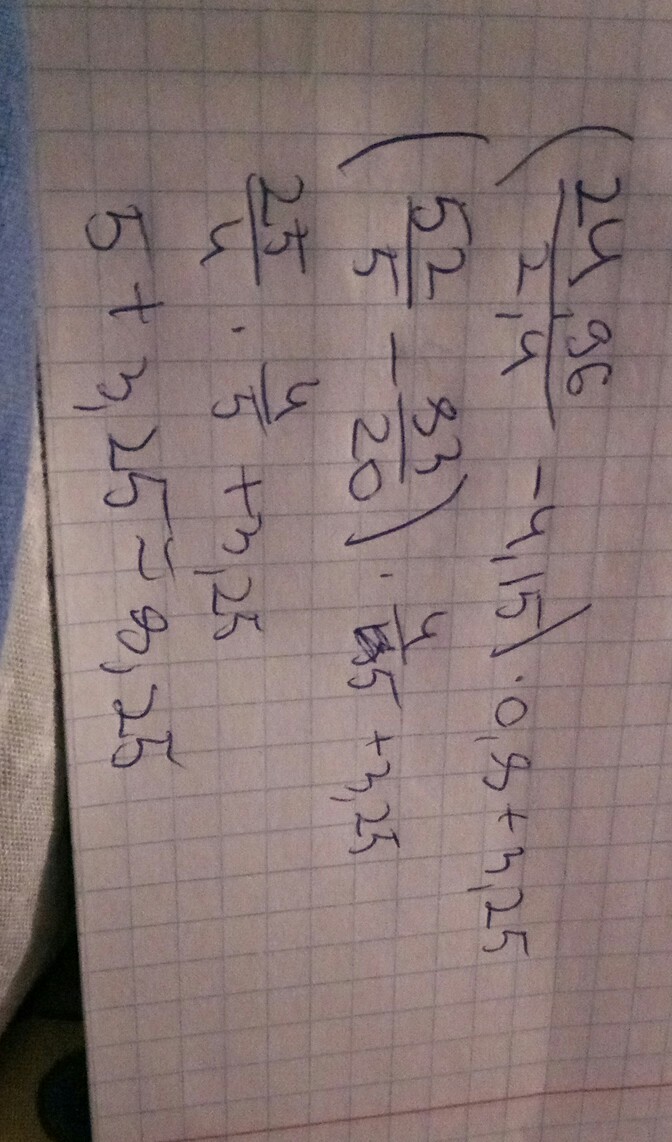 (24,96/2,4 - 4,15) · 0,8 + 3,25
(52/5 - 83/20) · 4/5 + 3,25
25/4 · 4/5 + 3,25
5 + 3,25 = 8,25